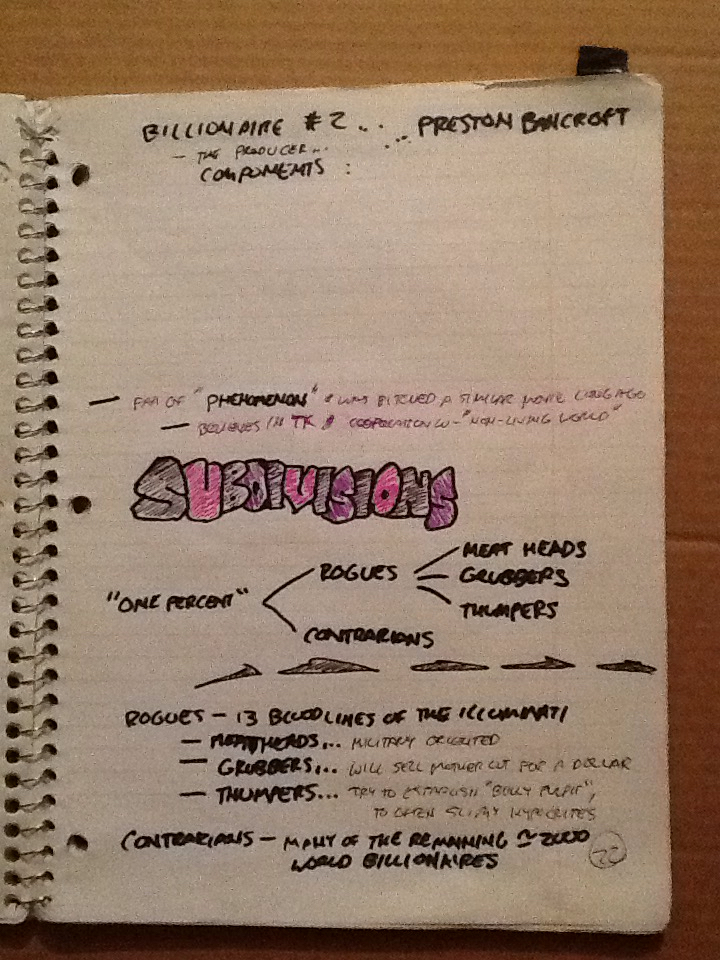 BILLIONAIRE #2... ... PRESTON BANCROFT
- THE PRODUCER...
COMPONENTS :
- FAN OF "PHENOMENON" & WAS PITCHED A SIMILAR MOVIE LONG AGO
- BELIEVES IN TK & COOPERATION W- "NON-LIVING WORLD"
SUBDIVISIONS
"ONE PERCENT"
ROGUES
MEAT HEADS
GRUBBERS
THUMPERS
CONTRARIANS
ROGUES - 13 BLOODLINES OF THE ILLUMINATI
- MEATHEADS... MILITARY ORIENTED
- GRUBBERS... WILL SELL MOTHER OUT FOR A DOLLAR
- THUMPERS... TRY TO ESTABLISH "BULLY PULPIT",
TO OFTEN SLIMY HYPOCRITES
CONTRARIANS - MANY OF THE REMAINING ≅ 2000
WORLD BILLIONAIRES
22